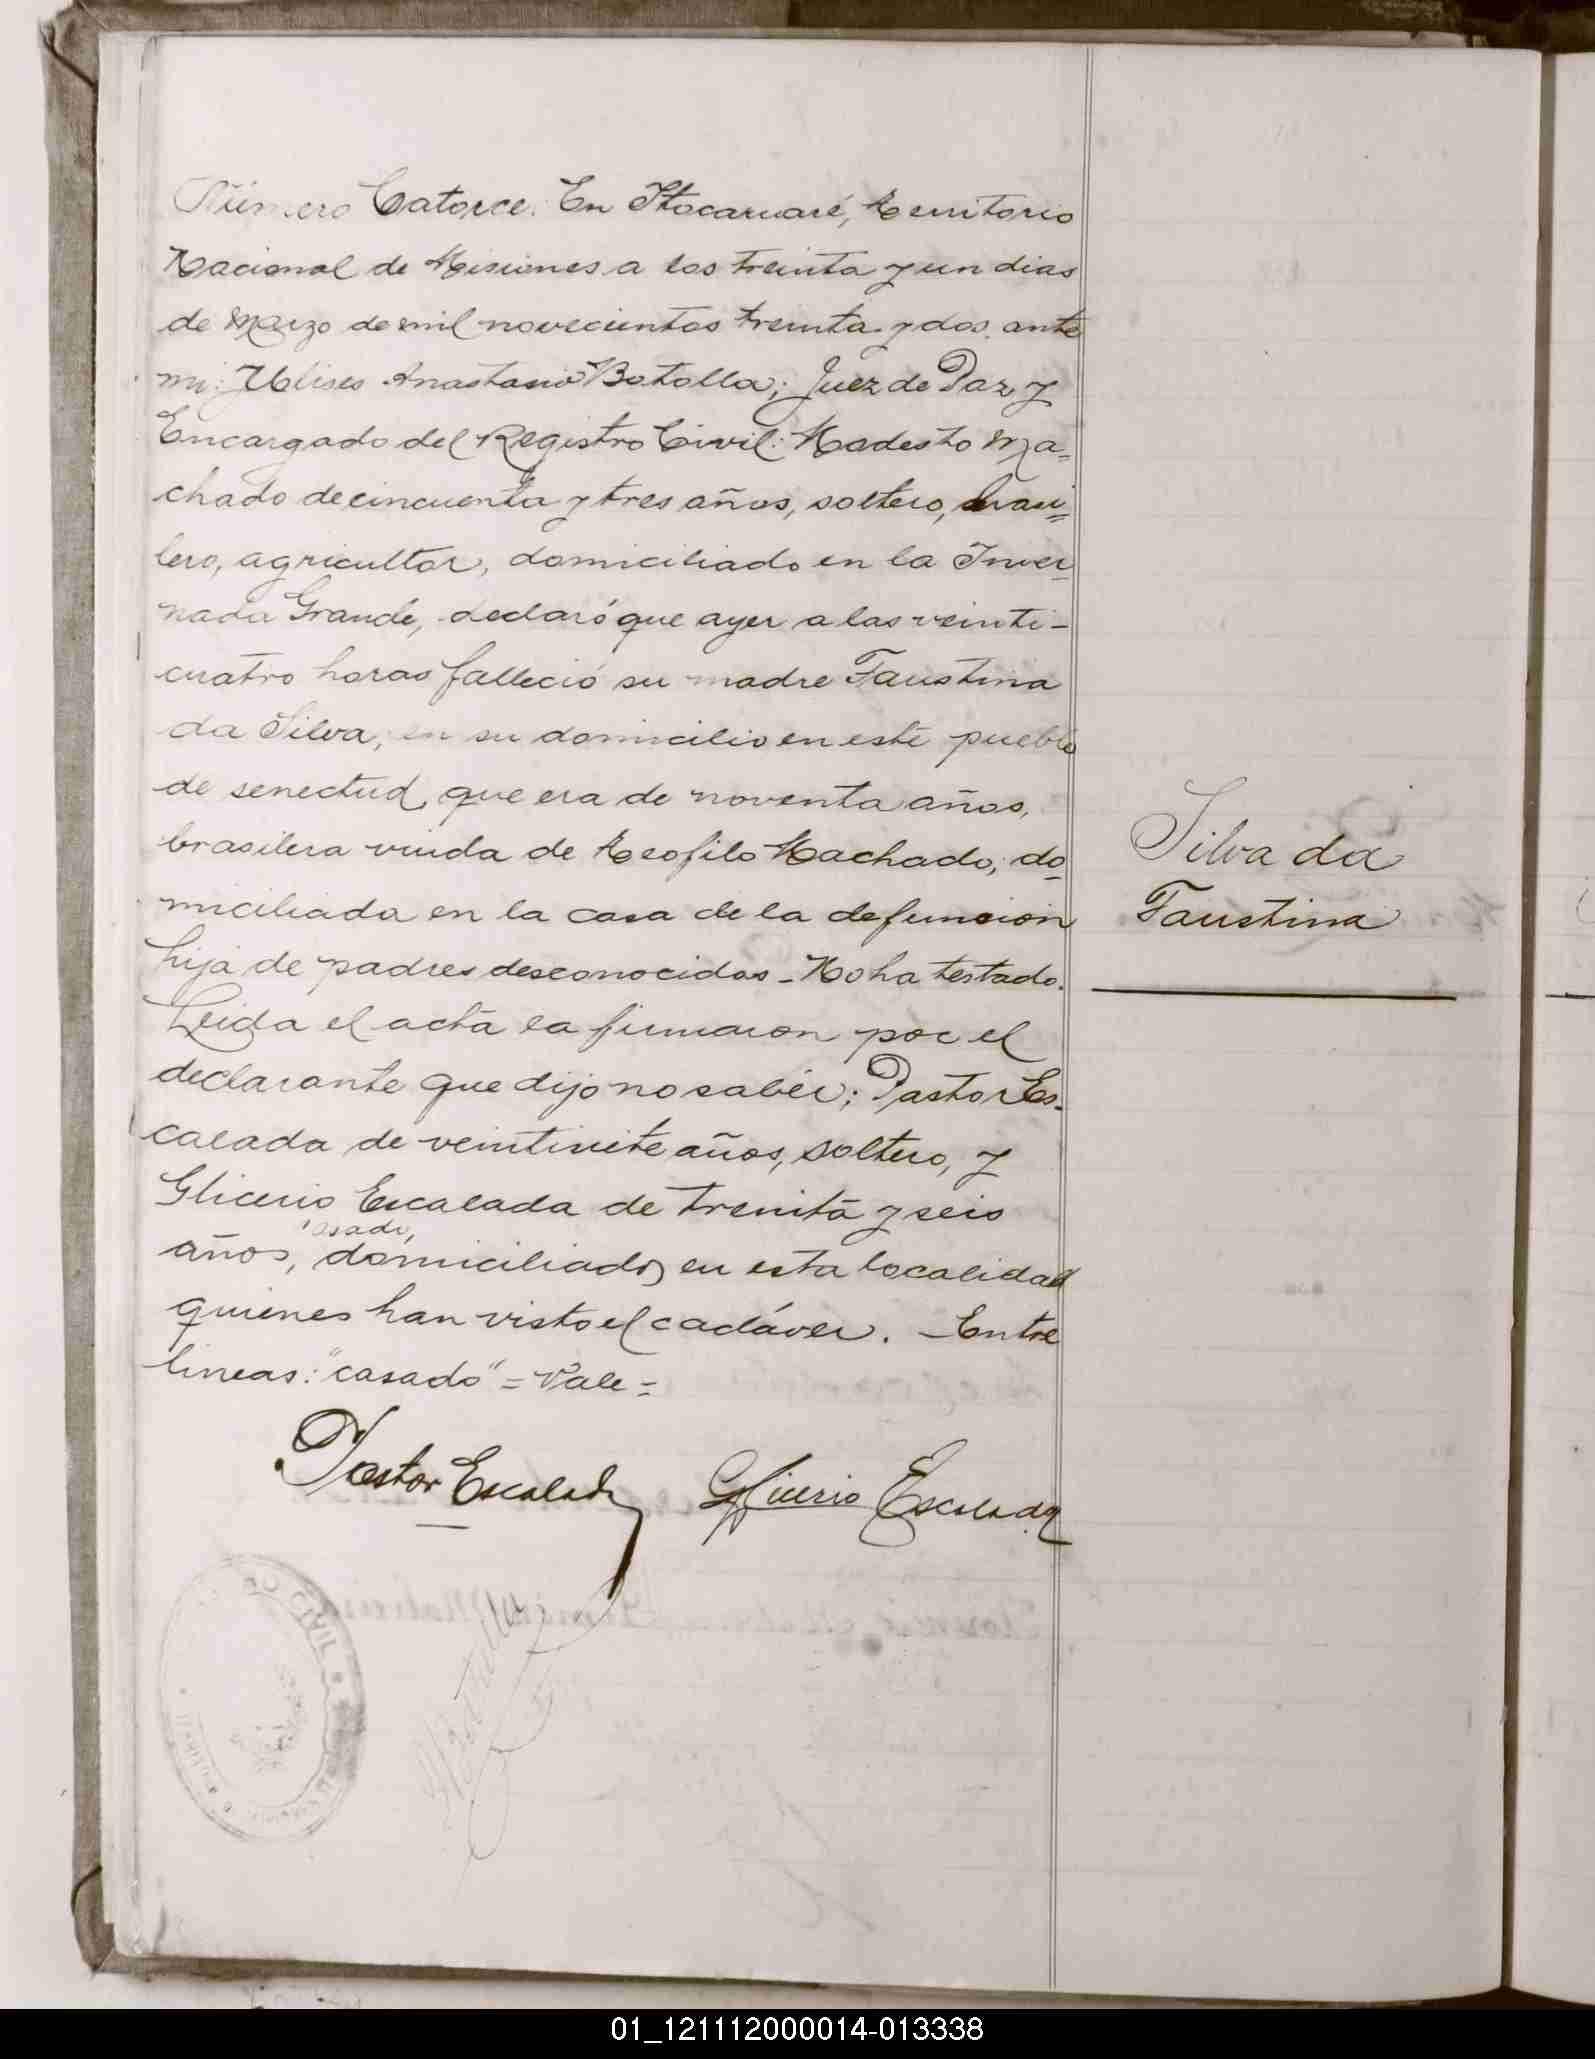 Número Catorce. En Itacaruaré, Territorio
Nacional de Misiones a los treinta y un dias
de Marzo de mil novecientos treinta y dos, ante
mi: Ulises Anastasio Botolla; Juez de Paz y
Encargado del Registro Civil: Modesto Ma=
chado de cincuenta y tres años, soltero, brasi=
lero, agricultor, domiciliado en la Inver-
nada Grande, declaró que ayer a las veinti-
cuatro horas falleció su madre Faustina
da Silva, en su domicilio en este pueblo
de senectud, que era de noventa años,
brasilera viuda de Teofilo Machado, do-
miciliada en la casa de la defunción
hija de padres desconocidos - No ha testado.
Leida el acta la firmaron por el
declarante que dijo no saber; Pastor Es-
calada de veintisiete años, soltero, y
Glicerio Escalada de treinta y seis
casado,
años, domiciliados en esta localidad
quienes han visto el cadáver. - Entre
lineas: "casado" = Vale =
Silva da
Faustina
Pastor Escalada Glicerio Escalada
CIVIL
01_121112000014-013338